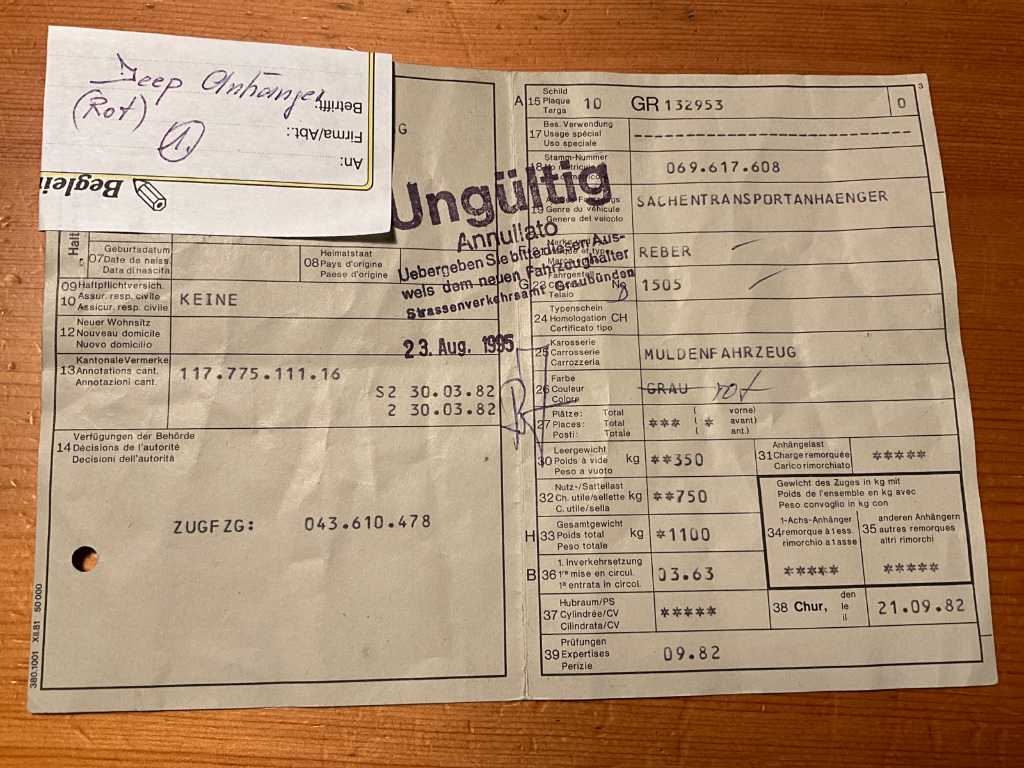 Jeep Anhänger
(Rot)
1.
Betrifft:
Firma/Abt.:
An:
Beglei
G
Halt
07 Geburtsdatum
Date de naiss.
Data di nascita
08 Heimatstaat
Pays d'origine
Paese d'origine
09 Haftpflichtversich.
10 Assur. resp. civile
Assicur. resp. civile
KEINE
12 Neuer Wohnsitz
Nouveau domicile
Nuovo domicilio
13 Kantonale Vermerke
Annotations cant.
Annotazioni cant.
117.775.111.16
S2 30.03.82
2 30.03.82
14 Verfügungen der Behörde
Décisions de l'autorité
Decisioni dell'autorità
ZUGFZG: 043.610.478
380.1001 XII.81 50 000
Ungültig
Annullato
Uebergeben Sie bitte diesen Aus-
weis dem neuen Fahrzeughalter
Strassenverkehrsamt Graubünden
23. Aug. 1995
3
A 15 Schild
Plaque
Targa
10 GR 132953 0
17 Bes. Verwendung
Usage spécial
Uso speciale
18 Stamm-Nummer
069.617.608
19
Genre du véhicule
Genere del veicolo
SACHENTRANSPORTANHAENGER
REBER
G 23 Fahrgestell
No
Telaio
1505
24 Typenschein
Homologation CH
Certificato tipo
25 Karosserie
Carrosserie
Carrozzeria
MULDENFAHRZEUG
26 Farbe
Couleur
Colore
GRAU rot
27 Plätze: Total ( vorne)
Places: Total ( avant)
Posti: Totale ( ant.)
*** *
30 Leergewicht
Poids à vide kg
Peso a vuoto
**350
31 Anhängelast
Charge remorquée
Carico rimorchiato
*****
32 Nutz-/Sattellast
Ch. utile/sellette kg
C. utile/sella
**750
Gewicht des Zuges in kg mit
Poids de l'ensemble en kg avec
Peso convoglio in kg con
H 33 Gesamtgewicht
Poids total kg
Peso totale
*1100
34 1-Achs-Anhänger
remorque à 1 ess.
rimorchio a 1 asse
*****
35 anderen Anhängern
autres remorques
altri rimorchi
*****
B 36 1. Inverkehrsetzung
1re mise en circul.
1a entrata in circol.
03.63
37 Hubraum/PS
Cylindrée/CV
Cilindrata/CV
*****
38 Chur, den
le
il
21.09.82
39 Prüfungen
Expertises
Perizie
09.82